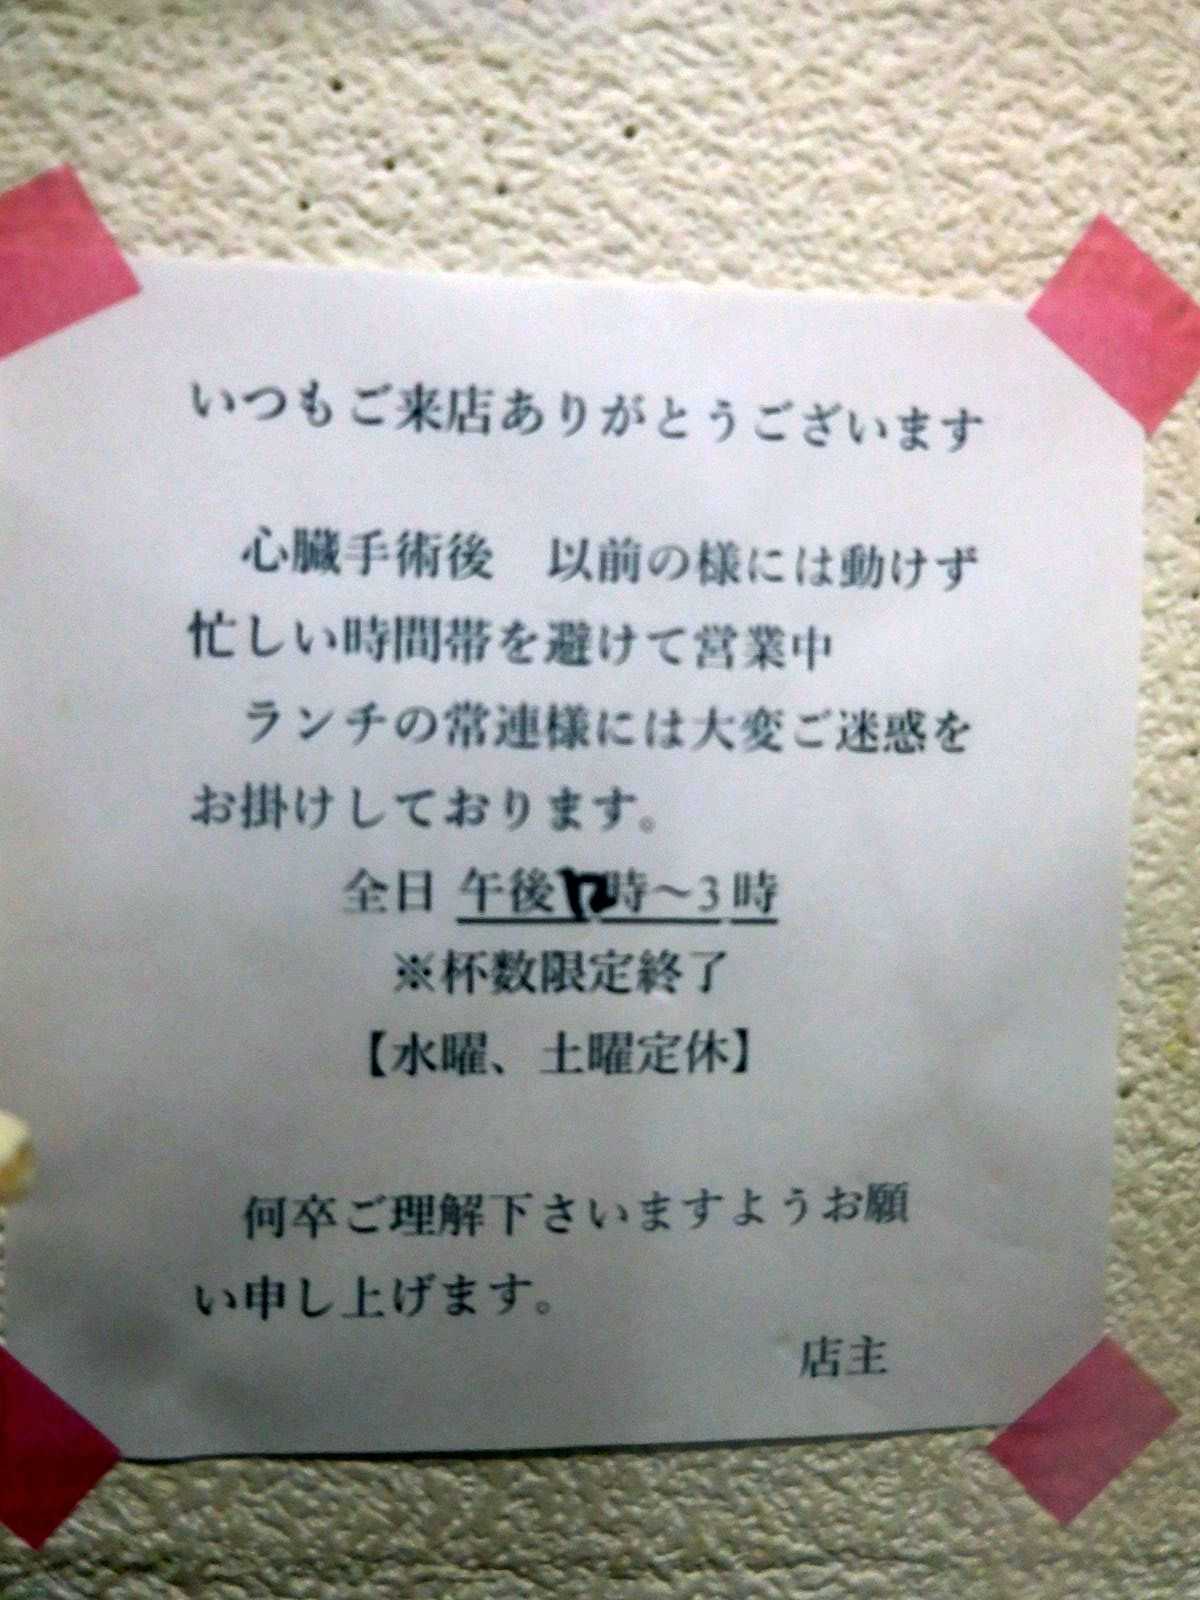 いつもご来店ありがとうございます
心臓手術後　以前の様には動けず
忙しい時間帯を避けて営業中
ランチの常連様には大変ご迷惑を
お掛けしております。
全日 午後12時～3時
※杯数限定終了
【水曜、土曜定休】
何卒ご理解下さいますようお願
い申し上げます。
店主